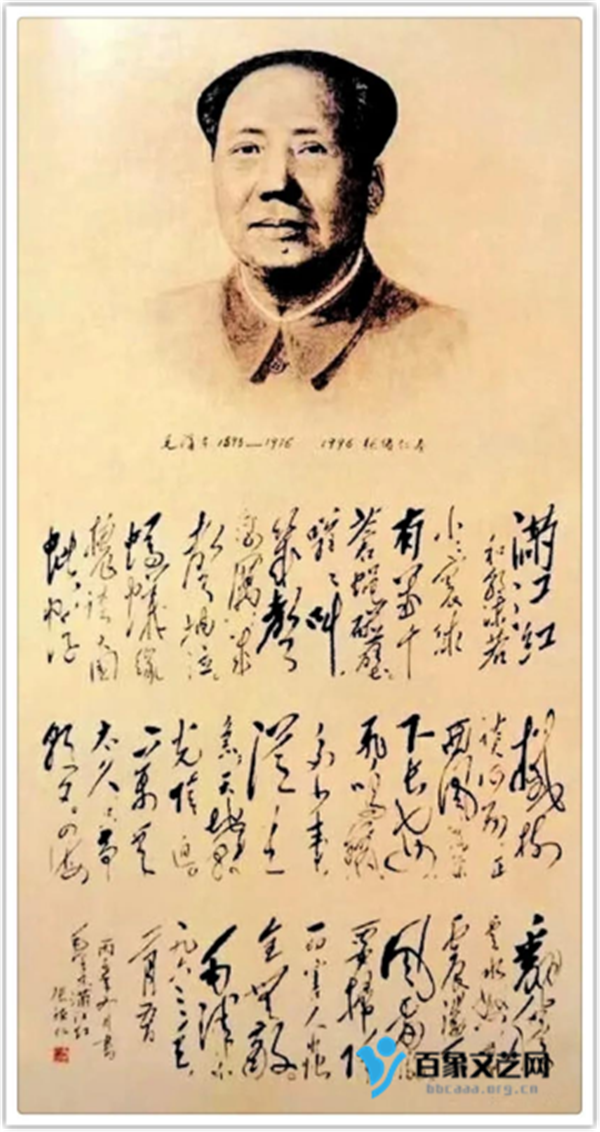 毛泽东 1893—1976 1996
满江红
和郭沫若
小小寰球
有几个
苍蝇碰壁
嗡嗡叫
几声
凄厉几
声抽泣
蚂蚁缘
槐夸大国
蚍蜉
撼树
谈何易正
西风落叶
下长安
飞鸣镝
多少事
从来
急天地转
光阴迫
一万年
太久只争
朝夕四海
翻腾
云水怒五洲
震荡
风雷激
要扫除
一切害人虫
全无敌
毛泽东
一九六三年
一月九日
满江红
百家文艺网
bbcaaa.org.cn